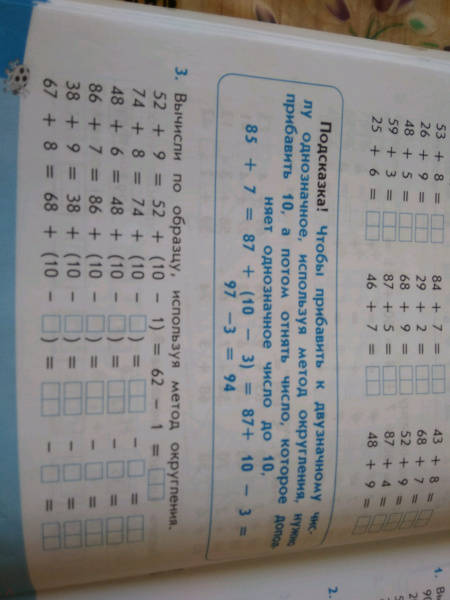 53 + 8 = □□ 84 + 7 = □□ 43 + 8 = □□
26 + 9 = □□ 29 + 2 = □□ 68 + 7 = □□
48 + 5 = □□ 68 + 9 = □□ 52 + 9 = □□
59 + 3 = □□ 87 + 5 = □□ 87 + 4 = □□
25 + 6 = □□ 46 + 7 = □□ 48 + 9 = □□
Подсказка! Чтобы прибавить к двузначному чис-
лу однозначное, используя метод округления, нужно
прибавить 10, а потом отнять число, которое допол-
няет однозначное число до 10,
85 + 7 = 87 + (10 - 3) = 87+ 10 - 3 =
97 -3 = 94
3. Вычисли по образцу, используя метод округления.
52 + 9 = 52 + (10 - 1) = 62 - 1 = □□
74 + 8 = 74 + (10 - □) = □□ - □ = □□
48 + 6 = 48 + (10 - □) = □□ - □ = □□
86 + 7 = 86 + (10 - □) = □□ - □ = □□
38 + 9 = 38 + (10 - □) = □□ - □ = □□
67 + 8 = 68 + (10 - □) = □□ - □ = □□
1. Вы
90
2.